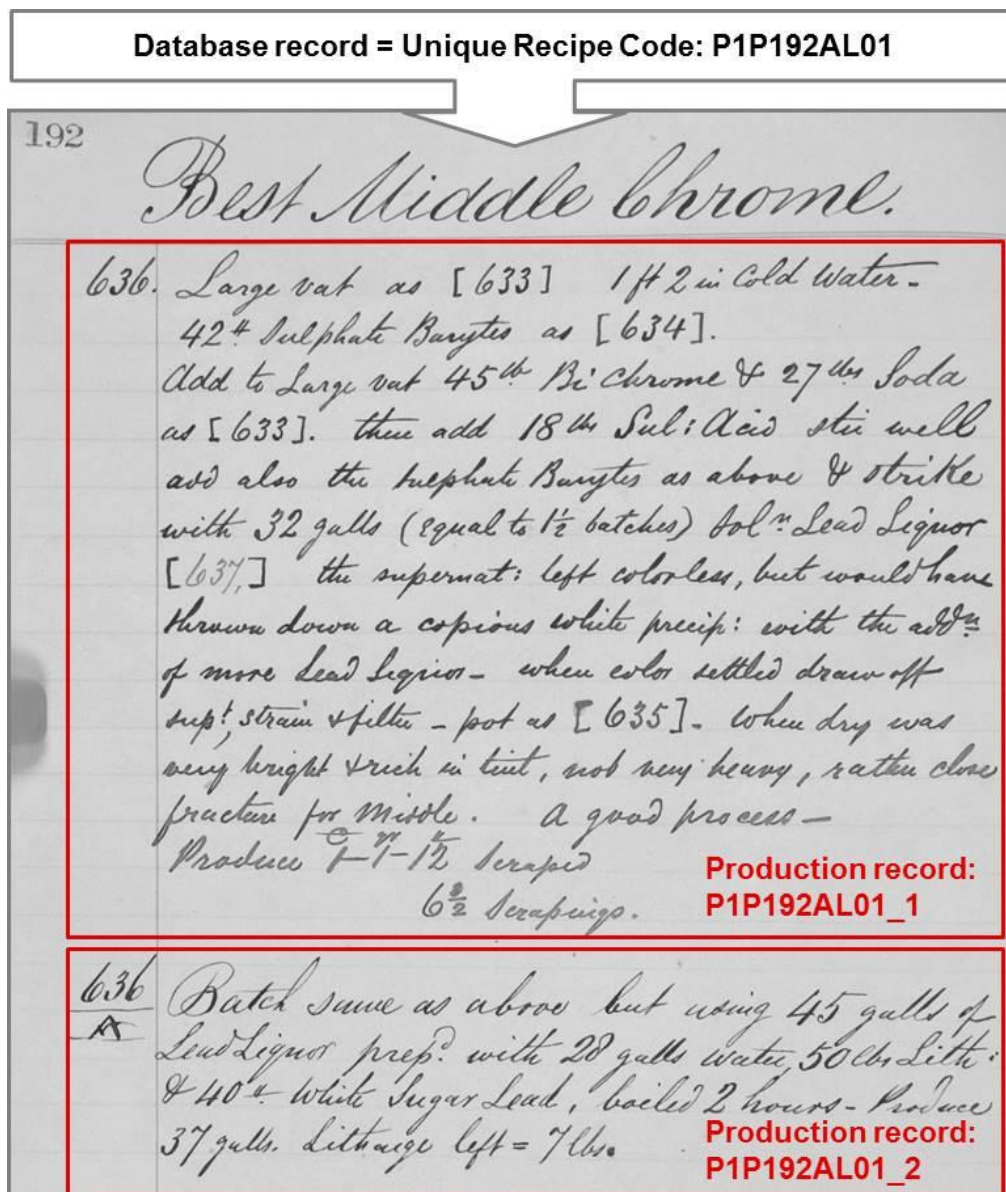 Database record = Unique Recipe Code: P1P192AL01
192
Best Middle Chrome.
636. Large vat as [633] 1 ft 2 in Cold Water -
42 # Sulphate Barytes as [634].
Add to Large vat 45 lb Bi Chrome & 27 lbs Soda
as [633]. then add 18 lbs Sul: Acid stir well
add also the sulphate Barytes as above & strike
with 32 galls (equal to 1½ batches) Solⁿ Lead Liquor
[637,] the supernat: left colorless, but would have
thrown down a copious white precip: with the addⁿ
of more Lead Liquior - when color settled draw off
supt, strain & filter - pot as [635]. When dry was
very bright & rich in tint, not very heavy, rather close
fracture for Middle. A good process -
Produce 1-1-12 Scraped
Scrapings.
Production record:
P1P192AL01_1
636 Batch same as above but using 45 galls of
A
Lead Liquor prepd. with 28 galls water, 50 lbs Lith:
& 40 # White Sugar Lead, boiled 2 hours - Produce
37 galls. Litharge left = 7 lbs.
Production record:
P1P192AL01_2